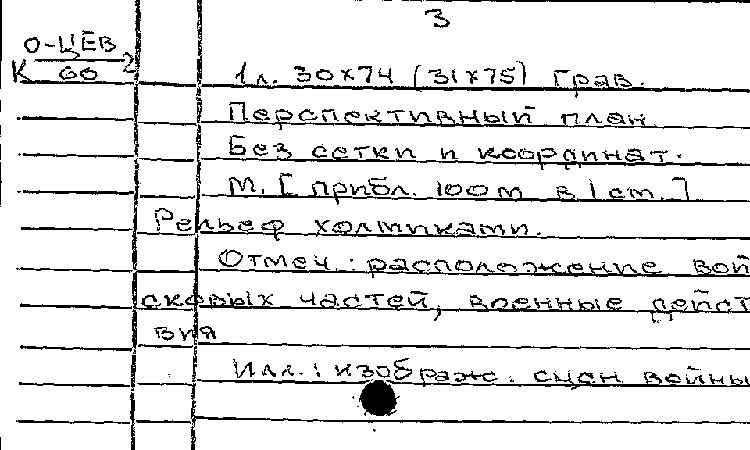 3
О-ЦЕВ
К 60 2
1л. 30х74 (31х75) Грав.
Перспективный план.
Без сетки и координат.
М. [прибл. 100 т в 1 ст.]
Рельеф холмиками.
Отмеч.: расположение вой
сковых частей, военные дейст
вия
Илл.: изображ. сцен войны